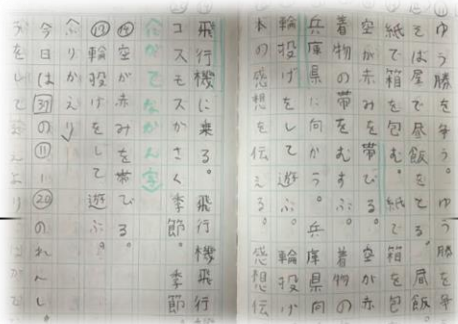 ⑪ゆう勝を争う。ゆう勝を争
そば屋で昼飯をとる。昼飯。
紙で箱を包む。紙で箱を包
空が赤みを帯びる。空が赤
着物の帯をむすぶ。着物の
兵庫県に向かう。兵庫県向
輪投げをして遊ぶ。輪投げ
本の感想を伝える。感想伝
飛行機に乗る。飛行機飛行
コスモスがさく季節。季節
かん字
空が赤みを帯びる。
輪投げをして遊ぶ。
ふりかえり
今日は37の⑪い⑳のれんし